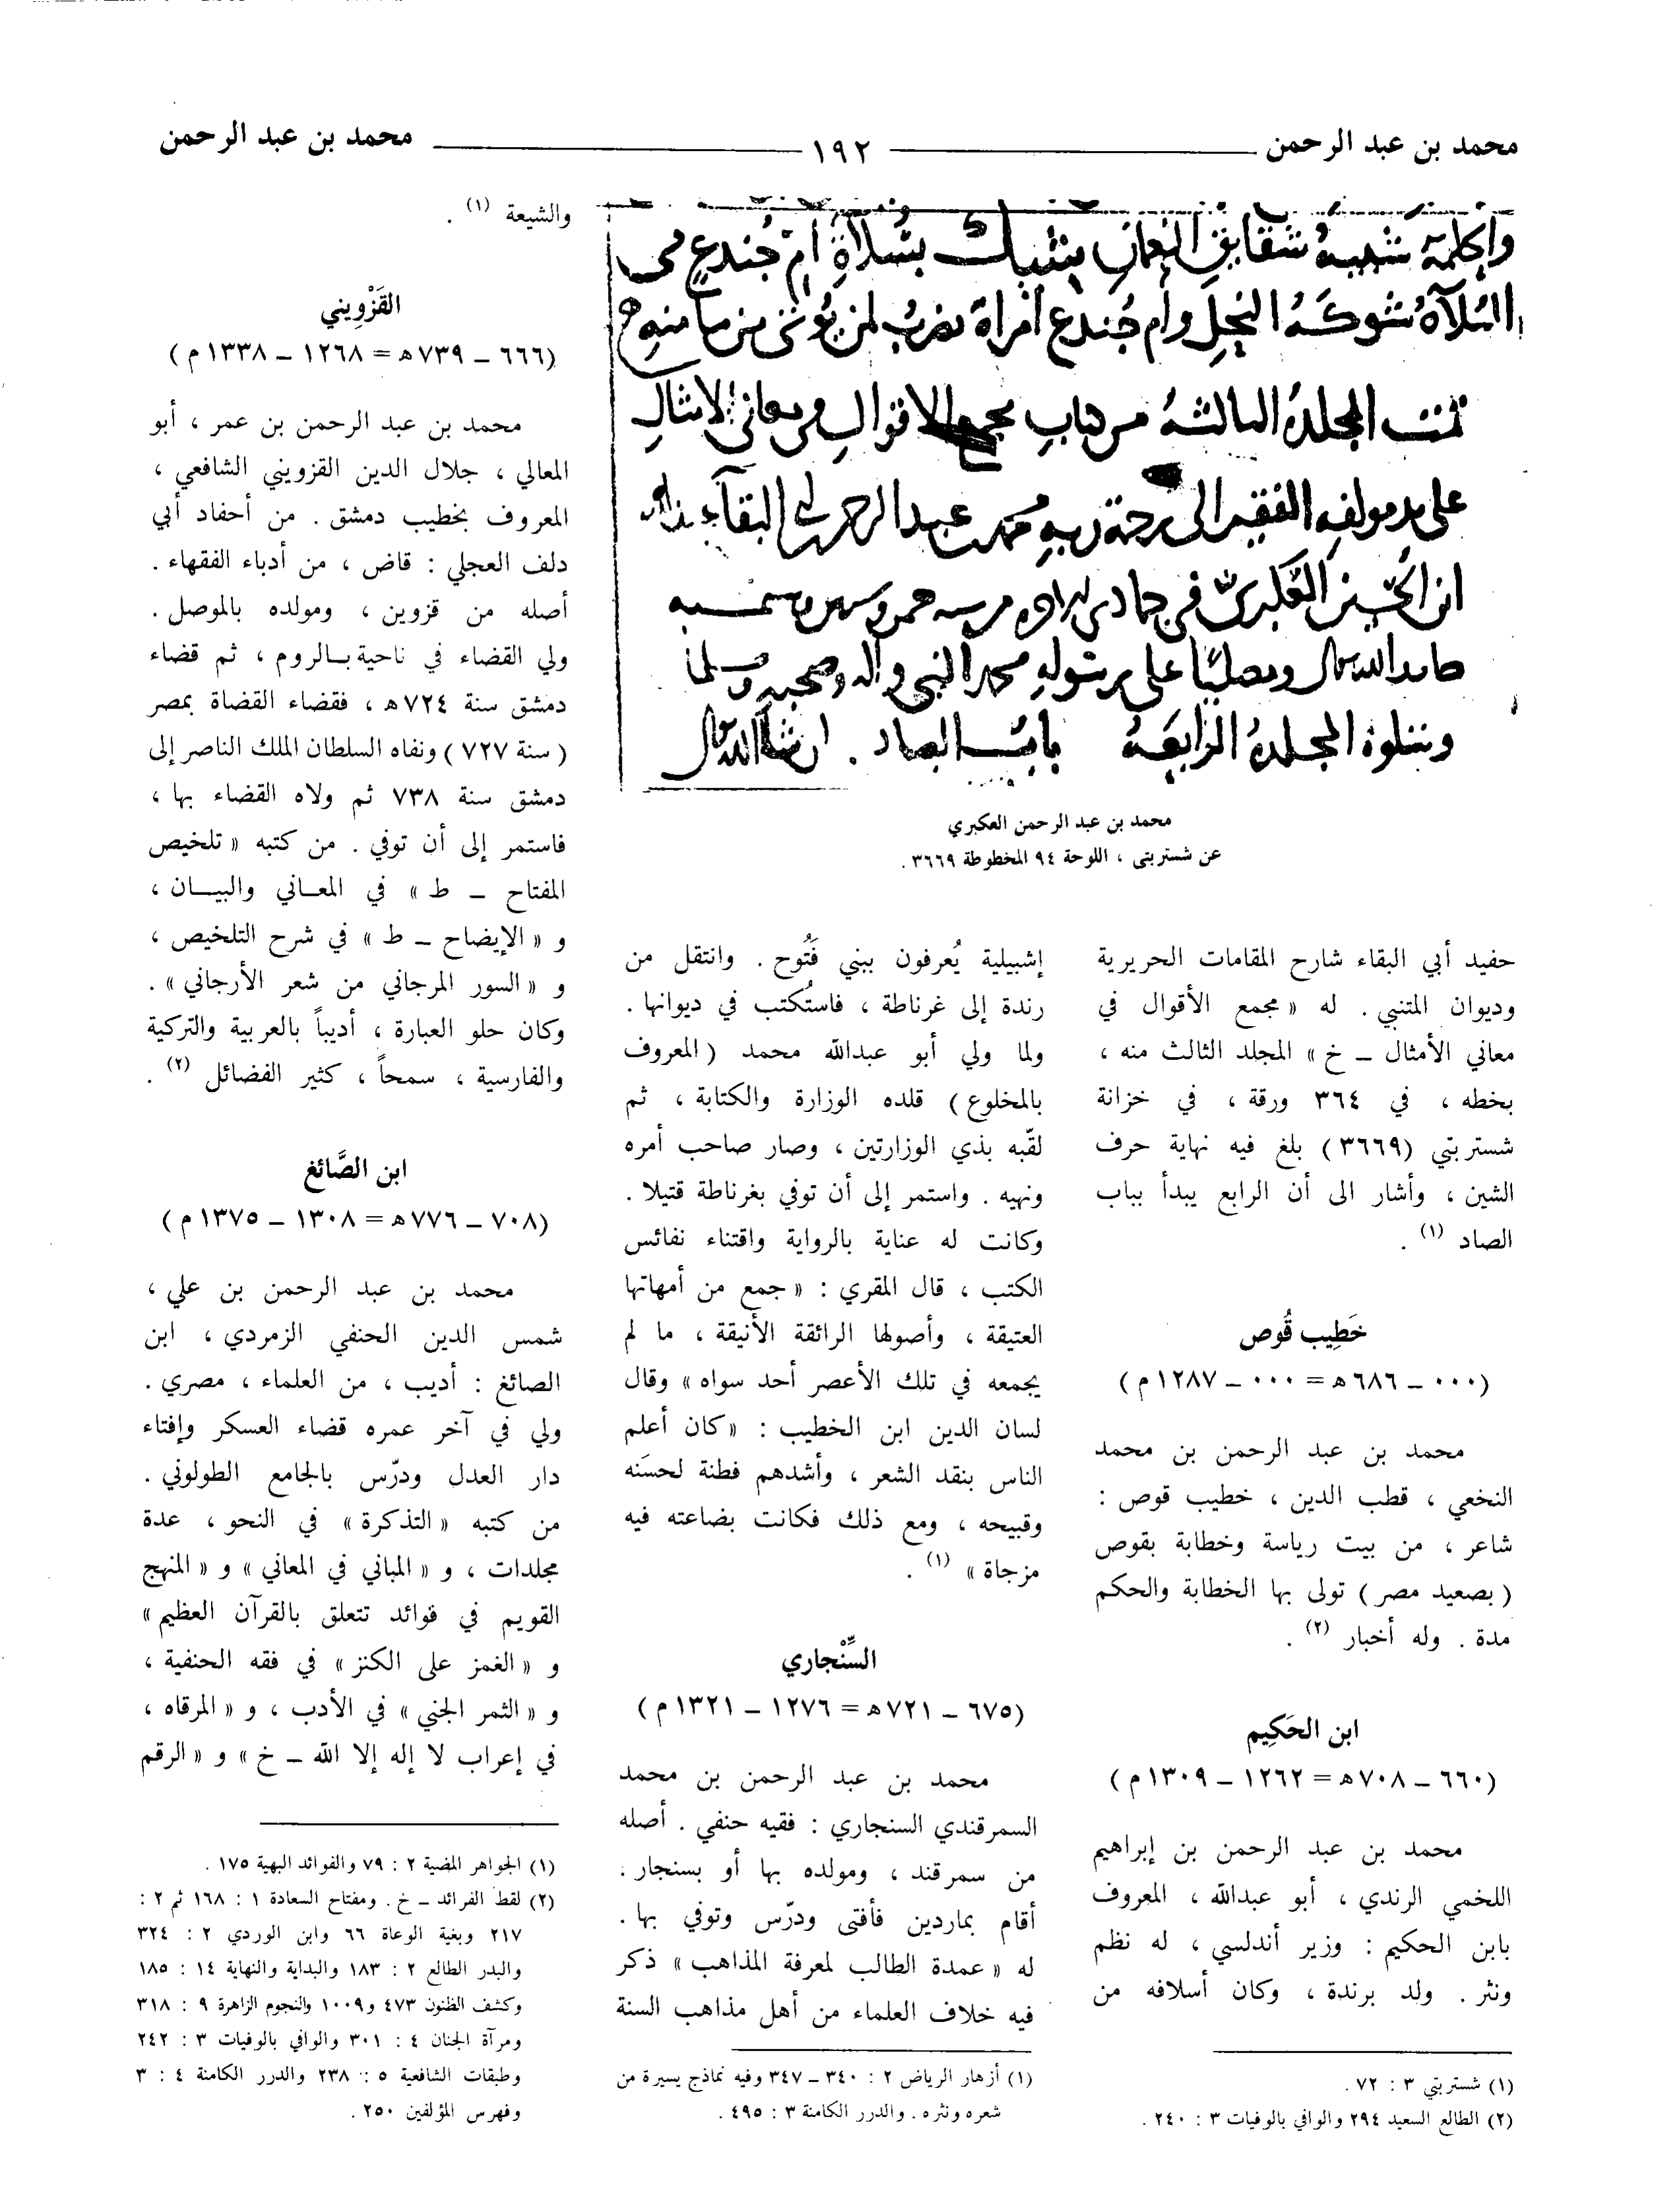 محمد بن عبد الرحمن ١٩٢ محمد بن عبد الرحمن
تمت المجلدة الثالثة من كتاب مجمع الاقوال في معاني الامثال
على يد مولفه الفقير الى رحمة ربه محمد بن عبد الرحمن بن ابي البقاء
ابن الحسين العكبري في جمادى
ومصليا على رسوله محمد النبي وآله وصحبه ومسلما
وتتلوه المجلدة الرابعة باب الصاد . ان شاء الله تعالى
محمد بن عبد الرحمن العكبري
عن شستربتى ، اللوحة ٩٤ المخطوطة ٣٦٦٩ .
حفيد أبي البقاء شارح المقامات الحريرية
وديوان المتنبي . له « مجمع الأقوال في
معاني الأمثال ــ خ » المجلد الثالث منه ،
بخطه ، في ٣٦٤ ورقة ، في خزانة
شستربتي (٣٦٦٩) بلغ فيه نهاية حرف
الشين ، وأشار الى أن الرابع يبدأ بباب
الصاد (١) .
خَطِيب قُوص
(٠٠٠ ــ ٦٨٦ هـ = ٠٠٠ ــ ١٢٨٧ م)
محمد بن عبد الرحمن بن محمد
النخعي ، قطب الدين ، خطيب قوص :
شاعر ، من بيت رياسة وخطابة بقوص
( بصعيد مصر ) تولى بها الخطابة والحكم
مدة . وله أخبار (٢) .
ابن الحَكِيم
(٦٦٠ ــ ٧٠٨ هـ = ١٢٦٢ ــ ١٣٠٩ م)
محمد بن عبد الرحمن بن إبراهيم
اللخمي الرندي ، أبو عبدالله ، المعروف
بابن الحكيم : وزير أندلسي ، له نظم
ونثر . ولد برندة ، وكان أسلافه من
(١) شستربتي ٣ : ٧٢ .
(٢) الطالع السعيد ٢٩٤ والوافي بالوفيات ٣ : ٢٤٠ .
إشبيلية يُعرفون ببني فَتُوح . وانتقل من
رندة إلى غرناطة ، فاستُكتب في ديوانها .
ولما ولي أبو عبدالله محمد ( المعروف
بالمخلوع ) قلده الوزارة والكتابة ، ثم
لقّبه بذي الوزارتين ، وصار صاحب أمره
ونهيه . واستمر إلى أن توفي بغرناطة قتيلا .
وكانت له عناية بالرواية واقتناء نفائس
الكتب ، قال المقري : « جمع من أمهاتها
العتيقة ، وأصولها الرائقة الأنيقة ، ما لم
يجمعه في تلك الأعصر أحد سواه » وقال
لسان الدين ابن الخطيب : « كان أعلم
الناس بنقد الشعر ، وأشدهم فطنة لحسَنه
وقبيحه ، ومع ذلك فكانت بضاعته فيه
مزجاة » (١) .
السِّنْجاري
(٦٧٥ ــ ٧٢١ هـ = ١٢٧٦ ــ ١٣٢١ م)
محمد بن عبد الرحمن بن محمد
السمرقندي السنجاري : فقيه حنفي . أصله
من سمرقند ، ومولده بها أو بسنجار .
أقام بماردين فأفتى ودرّس وتوفي بها .
له « عمدة الطالب لمعرفة المذاهب » ذكر
فيه خلاف العلماء من أهل مذاهب السنة
(١) أزهار الرياض ٢ : ٣٤٠ ــ ٣٤٧ وفيه نماذج يسيرة من
شعره ونثره . والدرر الكامنة ٣ : ٤٩٥ .
والشيعة (١) .
القَزْوِيني
(٦٦٦ ــ ٧٣٩ هـ = ١٢٦٨ ــ ١٣٣٨ م)
محمد بن عبد الرحمن بن عمر ، أبو
المعالي ، جلال الدين القزويني الشافعي ،
المعروف بخطيب دمشق . من أحفاد أبي
دلف العجلي : قاض ، من أدباء الفقهاء .
أصله من قزوين ، ومولده بالموصل .
ولي القضاء في ناحية بالروم ، ثم قضاء
دمشق سنة ٧٢٤ هـ ، فقضاء القضاة بمصر
( سنة ٧٢٧ ) ونفاه السلطان الملك الناصر إلى
دمشق سنة ٧٣٨ ثم ولاه القضاء بها ،
فاستمر إلى أن توفي . من كتبه « تلخيص
المفتاح ــ ط » في المعاني والبيان ،
و « الإيضاح ــ ط » في شرح التلخيص ،
و « السور المرجاني من شعر الأرجاني » .
وكان حلو العبارة ، أديباً بالعربية والتركية
والفارسية ، سمحاً ، كثير الفضائل (٢) .
ابن الصَّائغ
(٧٠٨ ــ ٧٧٦ هـ = ١٣٠٨ ــ ١٣٧٥ م)
محمد بن عبد الرحمن بن علي ،
شمس الدين الحنفي الزمردي ، ابن
الصائغ : أديب ، من العلماء ، مصري .
ولي في آخر عمره قضاء العسكر وإفتاء
دار العدل ودرّس بالجامع الطولوني .
من كتبه « التذكرة » في النحو ، عدة
مجلدات ، و « المباني في المعاني » و « المنهج
القويم في فوائد تتعلق بالقرآن العظيم »
و « الغمز على الكنز » في فقه الحنفية ،
و « الثمر الجني » في الأدب ، و « المرقاه ،
في إعراب لا إله إلا الله ــ خ » و « الرقم
(١) الجواهر المضية ٢ : ٧٩ والفوائد البهية ١٧٥ .
(٢) لقط الفرائد ــ خ . ومفتاح السعادة ١ : ١٦٨ ثم ٢ :
٢١٧ وبغية الوعاة ٦٦ وابن الوردي ٢ : ٣٢٤
والبدر الطالع ٢ : ١٨٣ والبداية والنهاية ١٤ : ١٨٥
وكشف الظنون ٤٧٣ و١٠٠٩ والنجوم الزاهرة ٩ : ٣١٨
ومرآة الجنان ٤ : ٣٠١ والوافي بالوفيات ٣ : ٢٤٢
وطبقات الشافعية ٥ : ٢٣٨ والدرر الكامنة ٤ : ٣
وفهرس المؤلفين ٢٥٠ .